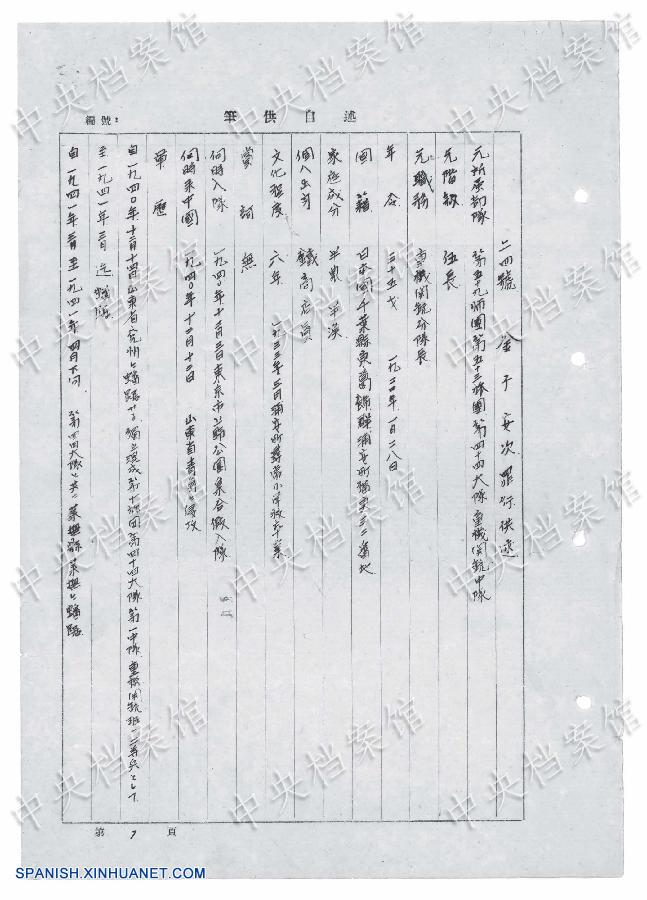 筆供自述
編號：
二四號 金子安次罪行供述
元所屬部隊 第五十九師團第五十三旅團第四十四大隊重機関銃中隊
元階級 伍長
元職務 重機関銃分隊長
年令 三十五才 一九二〇年一月二八日
國籍 日本國千葉縣東葛飾郡浦安町猫実三二番地
家庭成分 半農半漁
個人出身 鐵商店員
文化程度 六年 一九三三年三月浦安町尋常小学校卒業
無
何時入隊 一九四〇年十二月三日東京市上野公園集合徴入隊
何時来中國 一九四〇年十二月十二日 山東省青島ニ侵攻
軍歴
自一九四〇年十二月十四日山東省兗州ニ蟠踞セル獨立混成第十旅団第四十四大隊第一中隊重機関銃班ノ二等兵トシテ
至一九四一年三月迄蟠踞
自一九四一年三月至一九四一年四月下旬 第四四大隊ト共ニ莱蕪縣莱蕪ニ蟠踞
第 7 頁
中央档案馆
SPANISH.XINHUANET.COM